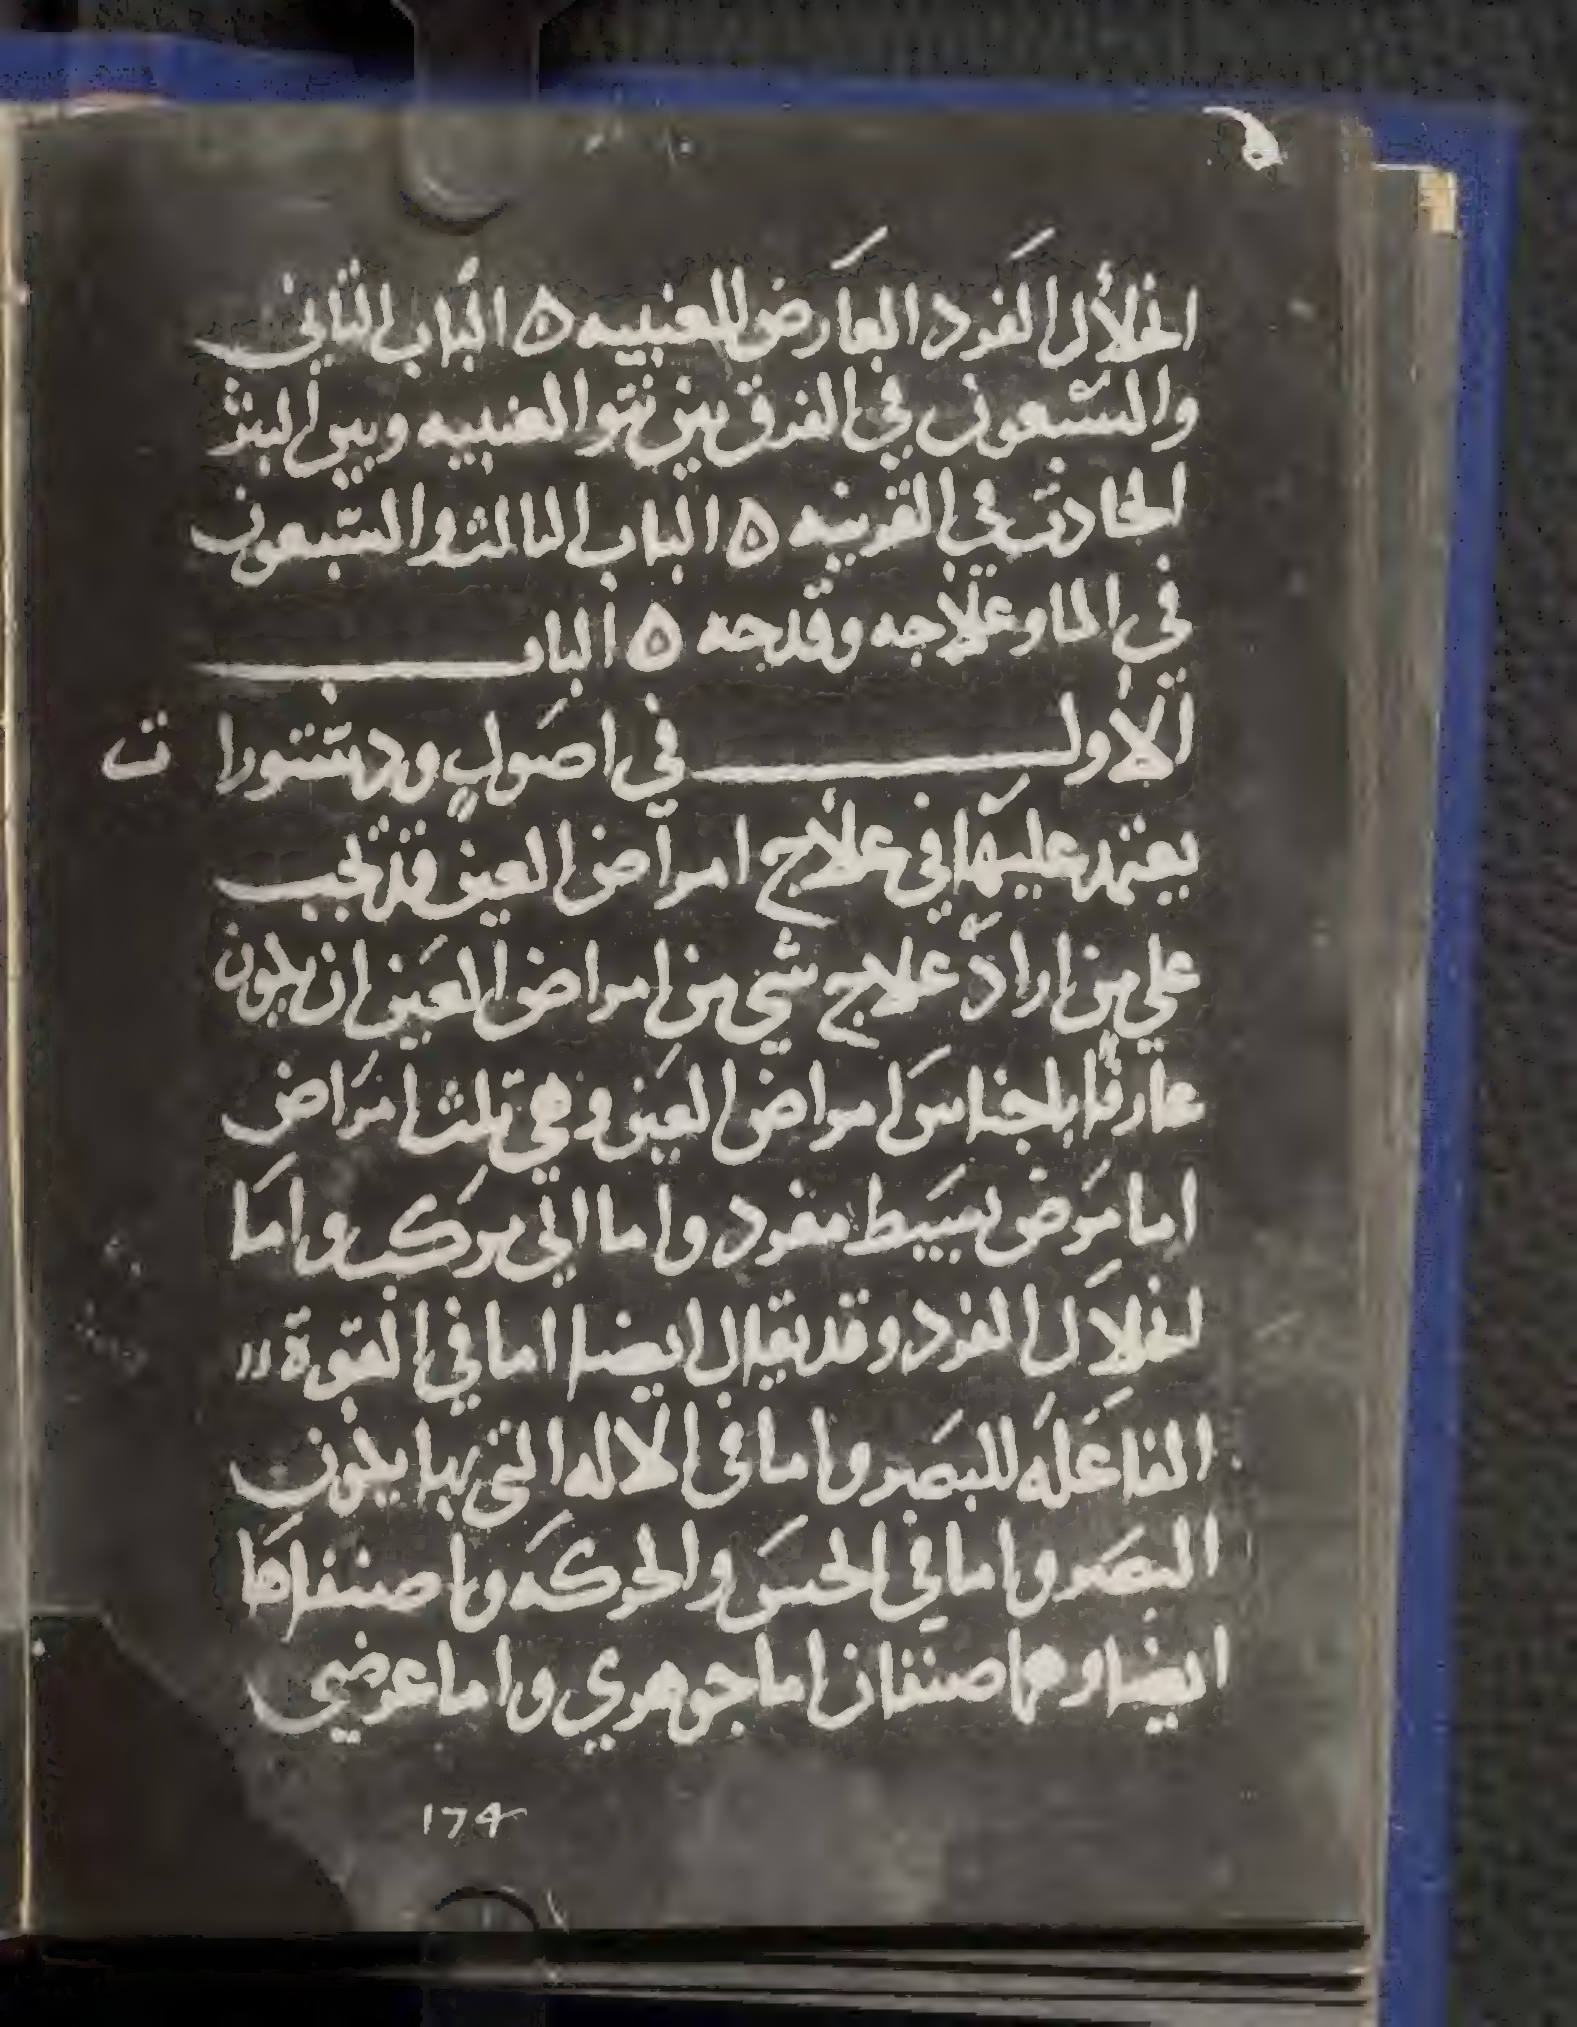 ه
انحلال الفرد العارض للعنبيه ه الباب الثاني
والسبعون في الفرق بين نتو العنبيه وبين البثر
الحادث في القرنيه ه الباب الثالث والسبعون
في الما وعلاجه وقدحه ه الباب
الاول في اصول ودستورات
يعتمد عليها في علاج امراض العين قد يجب
علي من اراد علاج شي من امراض العين ان يكون
عارفا باجناس امراض العين وهي ثلث امراض
اما مرض بسيط مفرد واما الي مركب واما
انحلال الفرد وقد يقال ايضا اما في القوة
الفاعله للبصر واما في الاله التي بها يكون
البصر واما في الحس والحركه واصنفاها
ايضا وهما صنفان اما جوهري واما عرضي
174